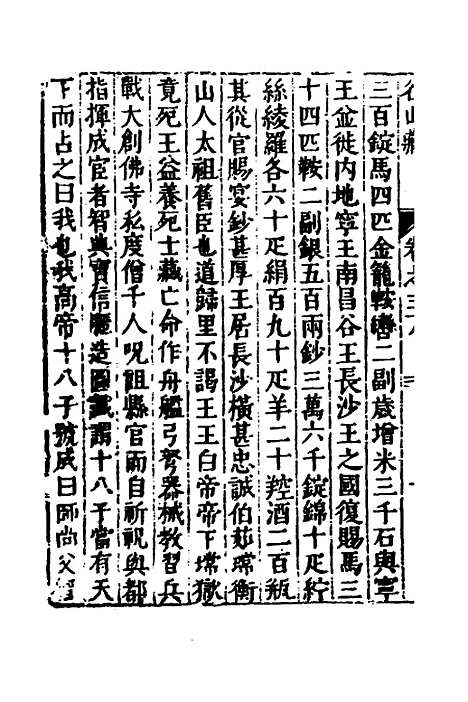 名山藏 卷之三八
三百錠馬四匹金籠鞍轡二副歲增米三千石與寧
王並徙内地寧王南昌谷王長沙王之國復賜馬三
十四匹鞍二副銀五百兩鈔三萬六千錠錦十疋紵
絲綾羅各六十疋絹百九十疋羊二十羫酒二百瓶
其從官賜宴鈔甚厚王居長沙橫甚忠誠伯茹瑺衡
山人太祖舊臣也道歸里不謁王王白帝帝下瑺獄
竟死王益養死士藏亡命作舟艦弓弩器械教習兵
戰大創佛寺私度僧千人呪詛縣官而自祈祝與都
指揮成宦者智與寶信曆造圖讖謂十八子當有天
下而占之曰我也我高帝十八子號成曰師尚父智